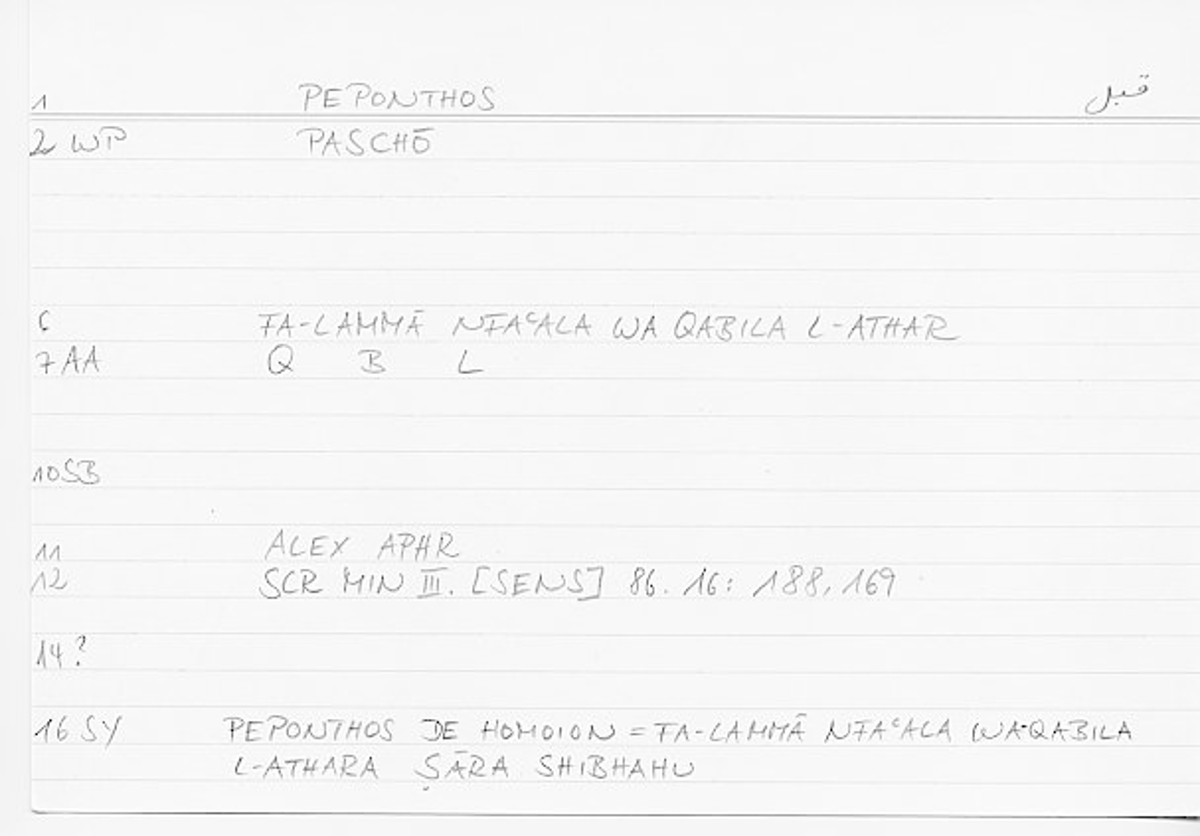 1 PEPONTHOS قبل
2 WP PASCHŌ
6 FA-LAMMĀ NFAʿALA WA QABILA L-ATHAR
7 AA Q B L
10 SB
11 ALEX APHR
12 SCR MIN III. [SENS] 86. 16: 188, 169
14 ?
16 SY PEPONTHOS DE HOMOION = FA-LAMMĀ NFAʿALA WA-QABILA
L-ATHARA ṢĀRA SHIBHAHU